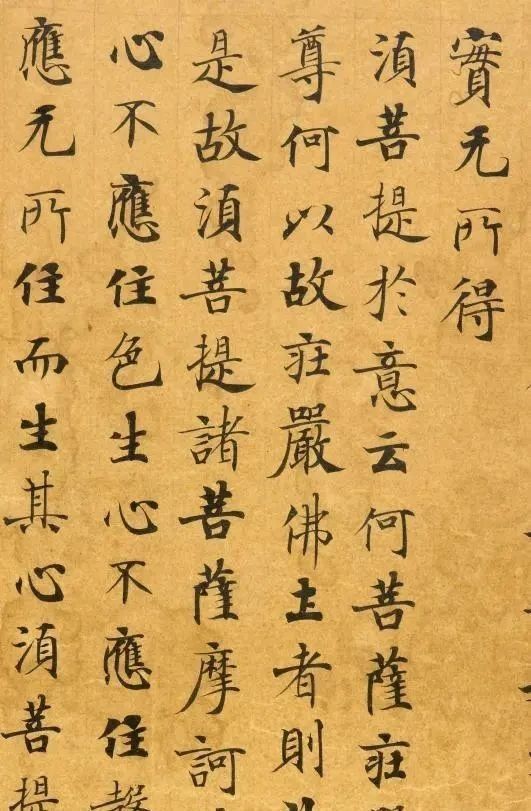 實无所得
湏菩提於意云何菩薩疘
尊何以故疘嚴佛土者則
是故湏菩提諸菩薩摩訶
心不應住色生心不應住聲
應无所住而生其心湏菩提